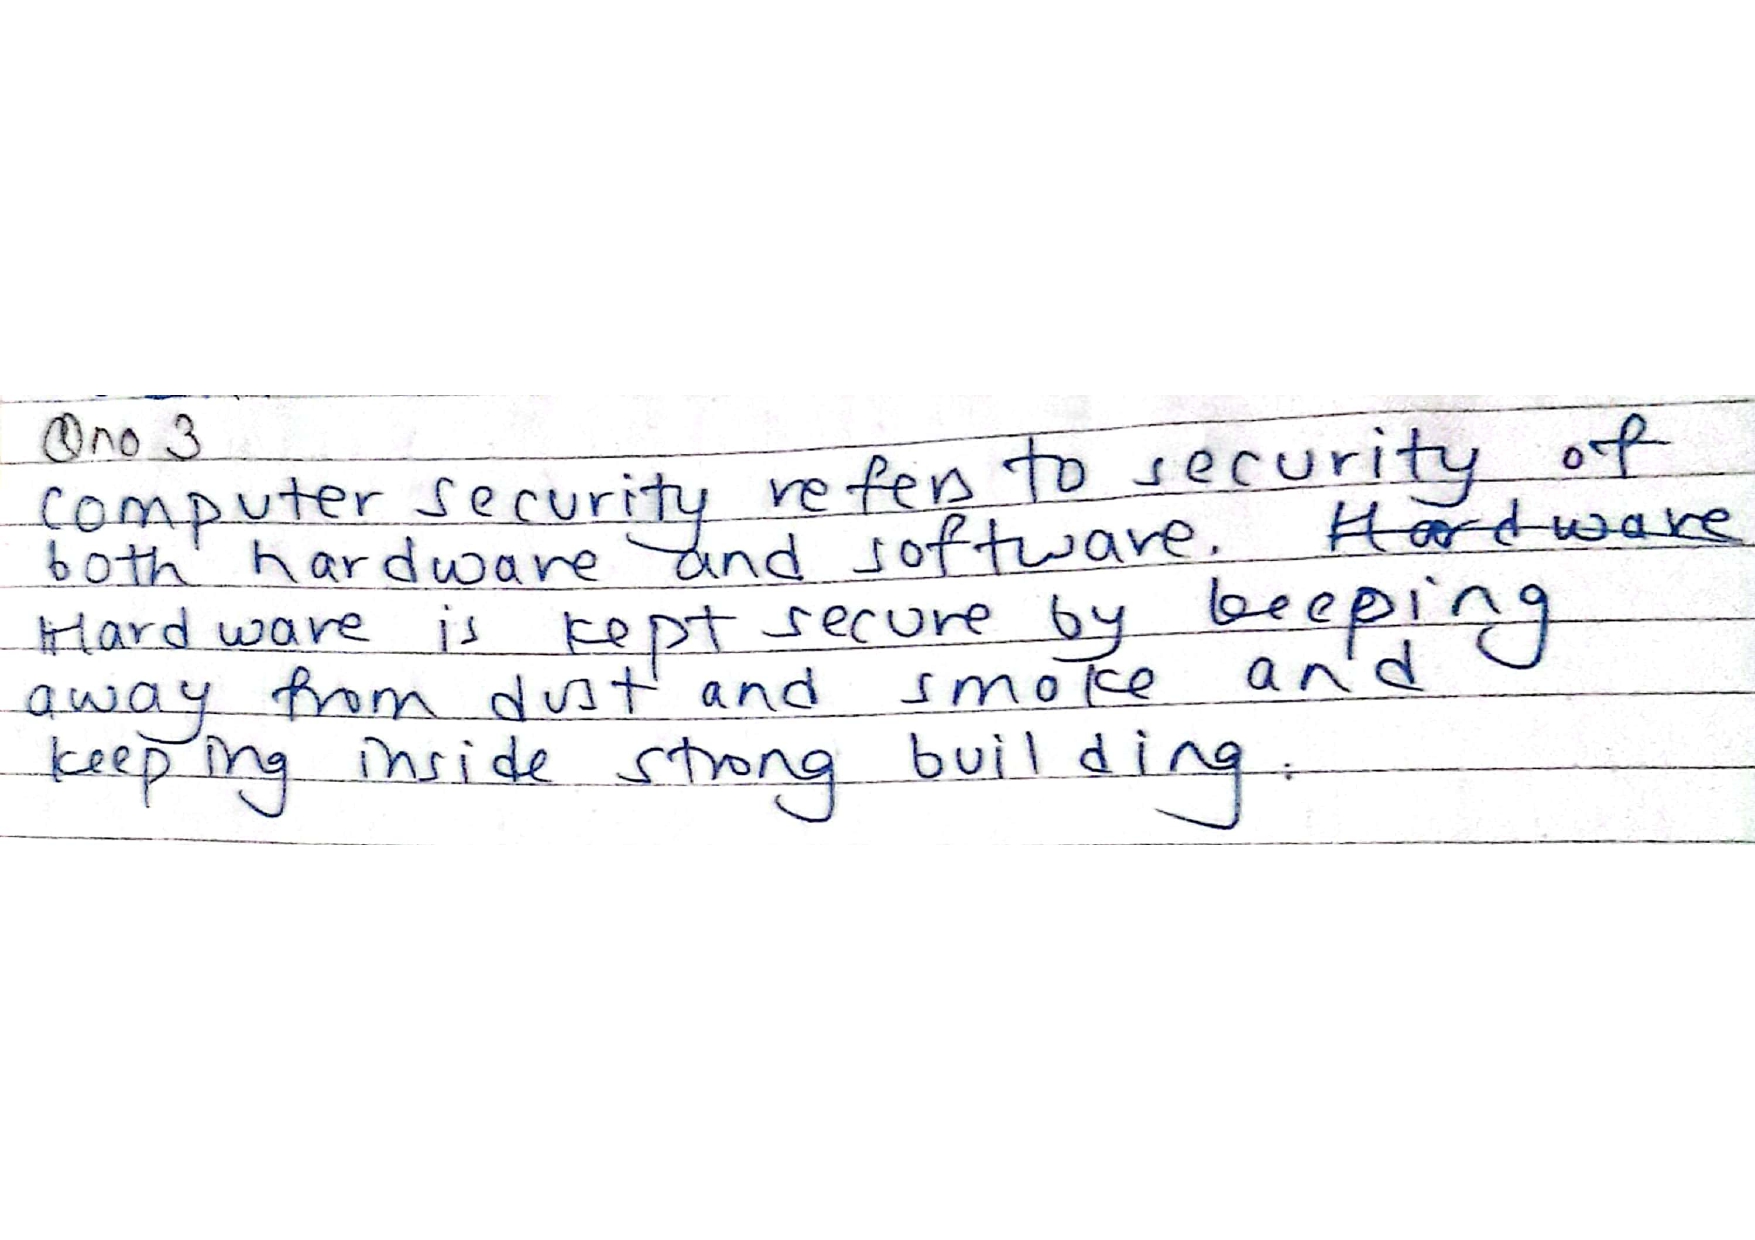 Qno 3
computer security refers to security of
both hardware and software. Hardware
Hardware is kept secure by beeping
away from dust and smoke and
keeping inside strong building.